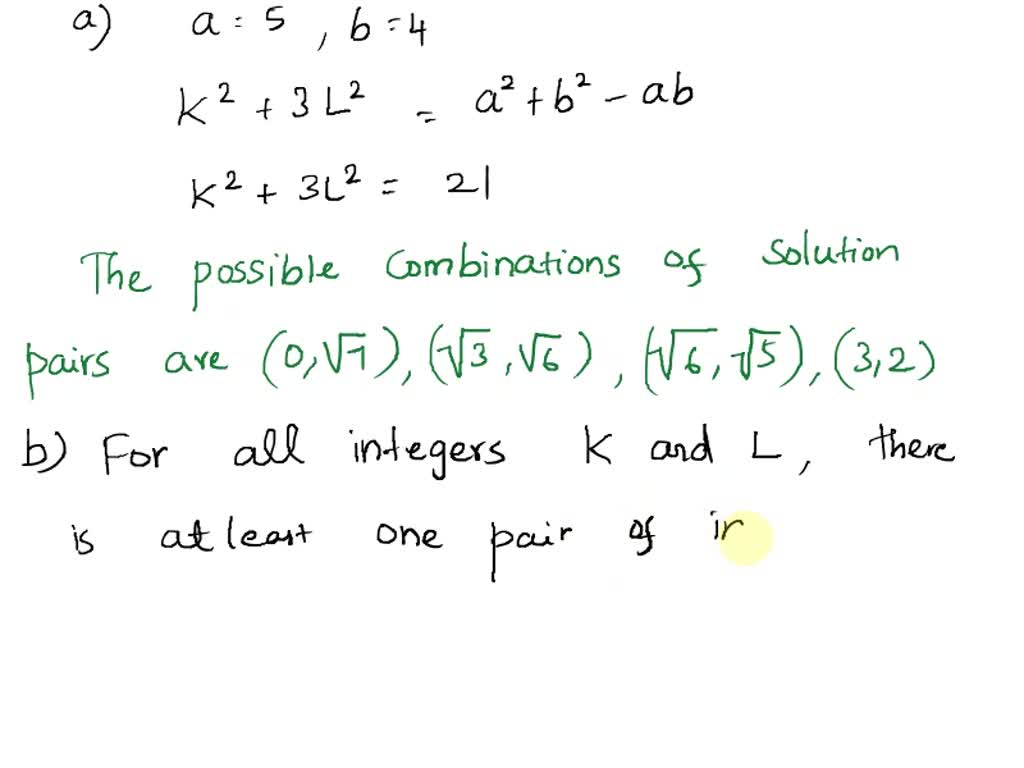 a) a = 5 , b = 4
K² + 3L² = a² + b² - ab
K² + 3L² = 21
The possible combinations of solution
pairs are (0, √7), (√3, √6), (√6, √5), (3, 2)
b) For all integers K and L, there
is atleast one pair of in